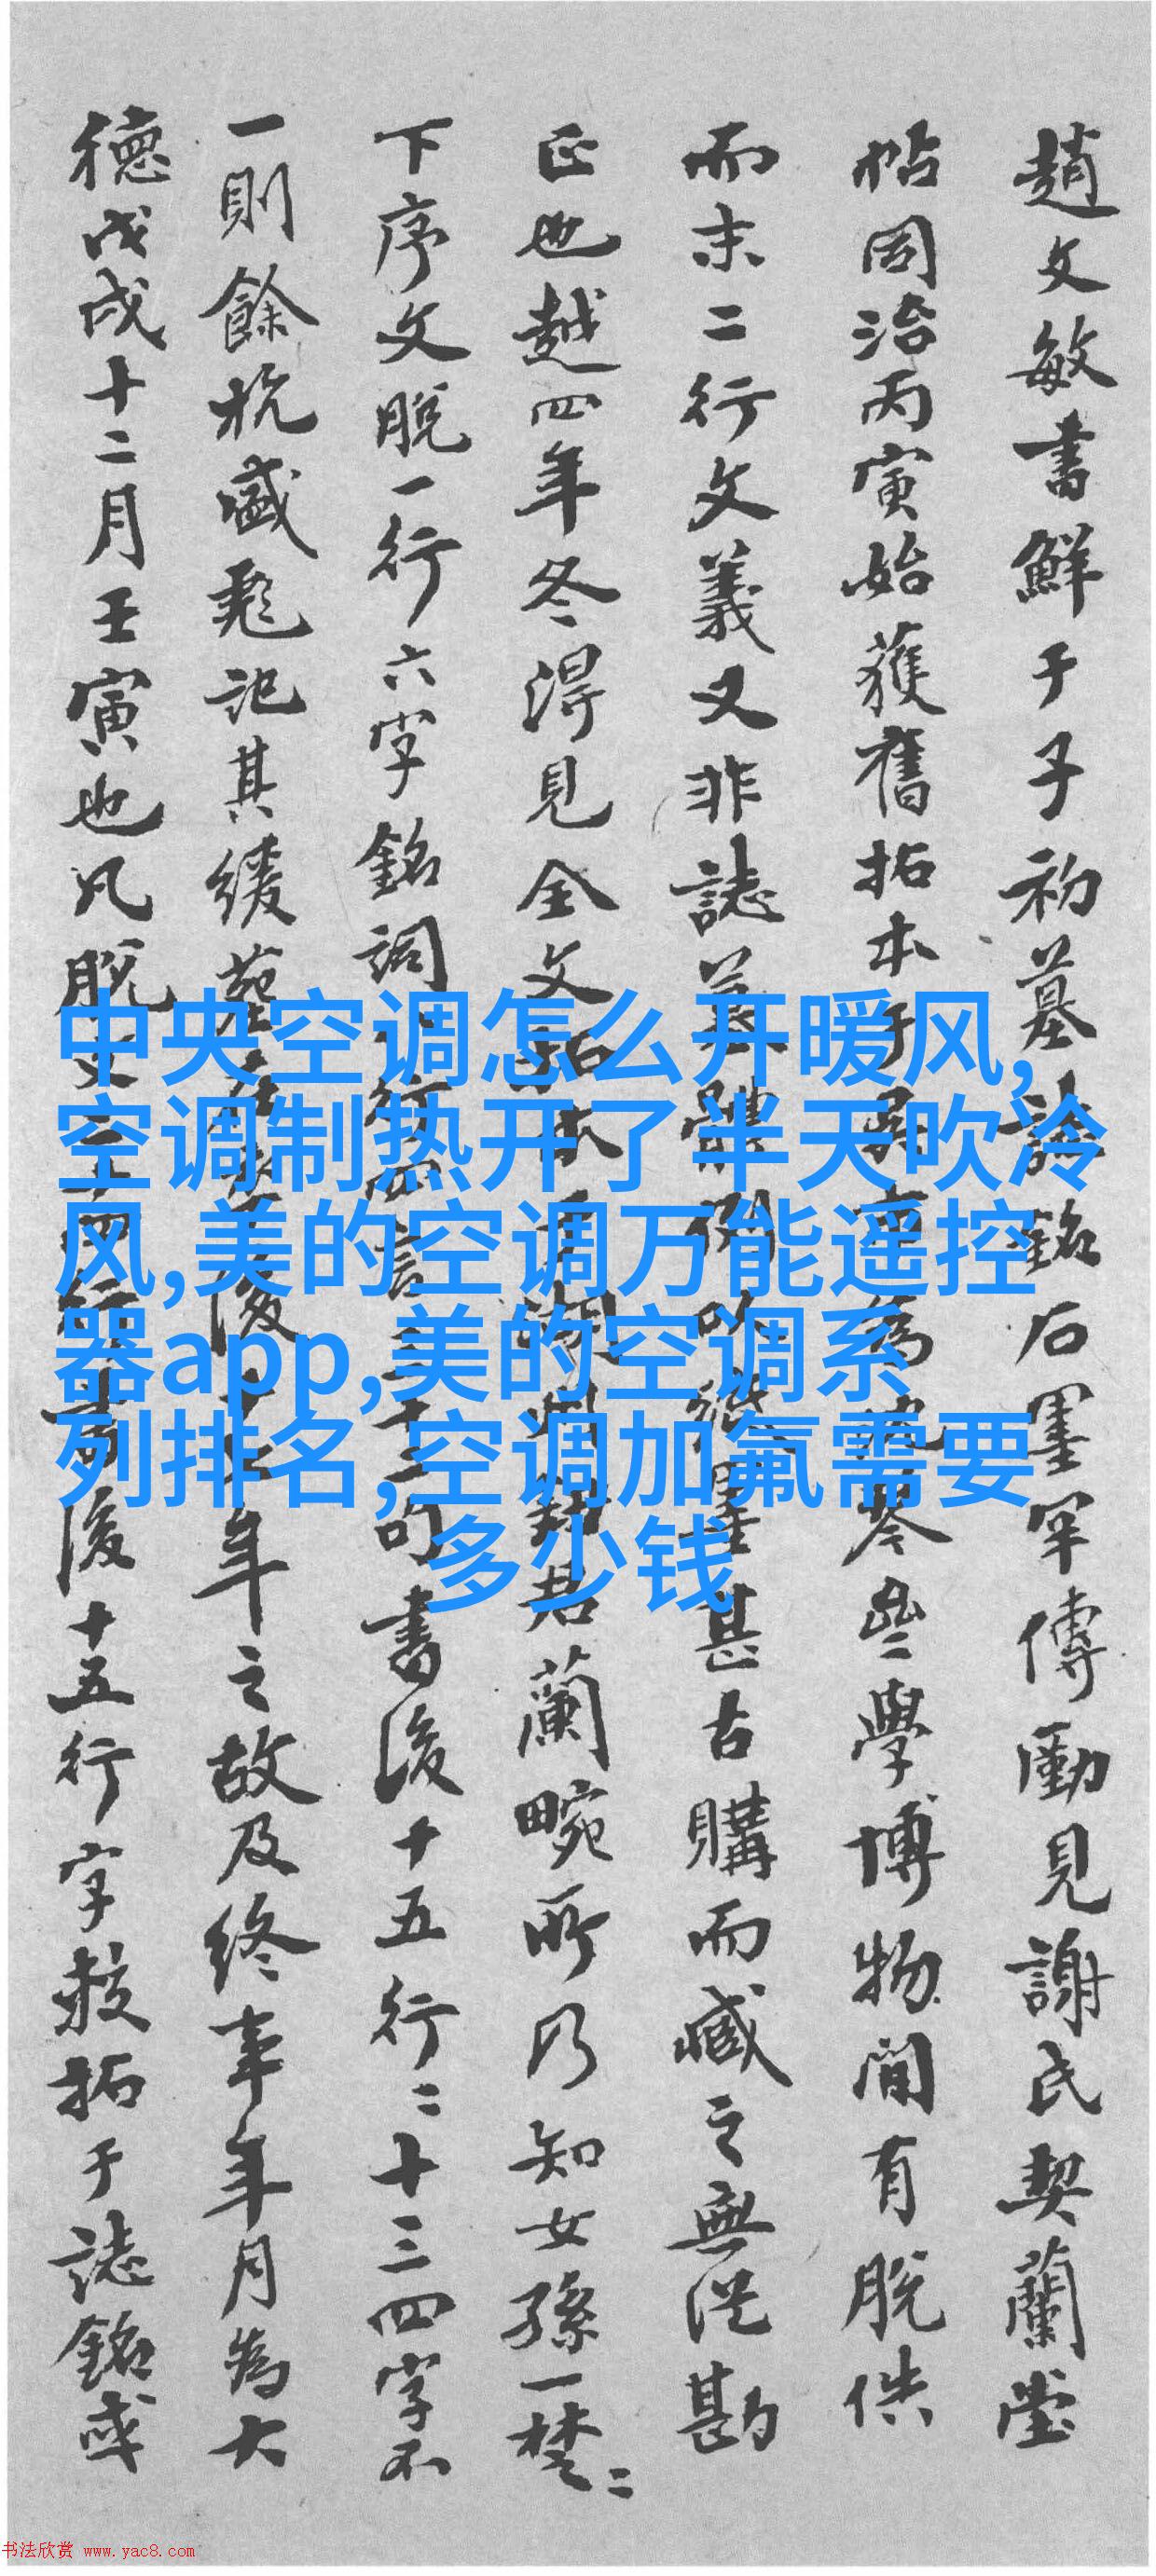 趙文敏書鮮于子初墓誌銘石墨罕傳勵見謝氏契蘭堂
帖同治丙寅始獲舊拓本于
學博物間有脫佚
而末二行文義又非誌
甚古購而藏之無從勘
正也越四年冬得見全文拓本
君蘭畹所乃知女孫一
下序文脫一行六字銘詞
句書後十五行二十三四字不
一則餘杭
記其緩葬
年之故及終事年月為大
德戊戌十二月壬寅也凡脫文
後十五行字
拓于誌銘或
中央空调怎么开暖风,
空调制热开了半天吹冷
风,美的空调万能遥控
器app,美的空调系
列排名,空调加氟需要
多少钱
书法欣赏 www.yac8.com